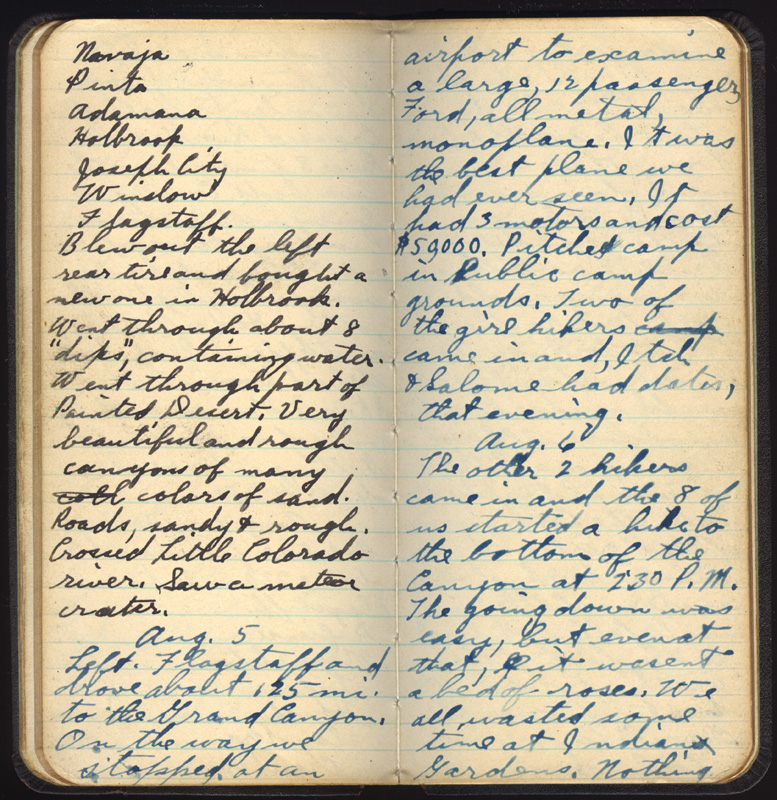 Navaja
Pinta
Adamana
Holbrook
Joseph City
Winslow
Flagstaff.
Blew out the left
rear tire and bought a
new one in Holbrook.
Went through about 8
"dips", containing water.
Went through part of
Painted Desert. Very
beautiful and rough
canyons of many
coll colors of sand.
Roads, sandy & rough.
Crossed Little Colorado
river. Saw a meteor
crater.
Aug. 5
Left. Flagstaff and
drove about 125 mi.
to the Grand Canyon.
On the way we
stopped, at an
airport to examine
a large, 12 passenger,
Ford, all metal,
monoplane. It was
the best plane we
had ever seen. It
had 3 motors and cost
$50000. Pitched camp
in Public camp
grounds. Two of
the girl hikers camp
came in and, I tch
& Salome had dates,
that evening.
Aug. 6
The other 2 hikers
came in and the 8 of
us started a hike to
the bottom of the
Canyon at 130 P.M.
The going down was
easy, but even at
that, it wesent
a bed of roses. We
all wasted some
time at Indian
Gardens. Nothing